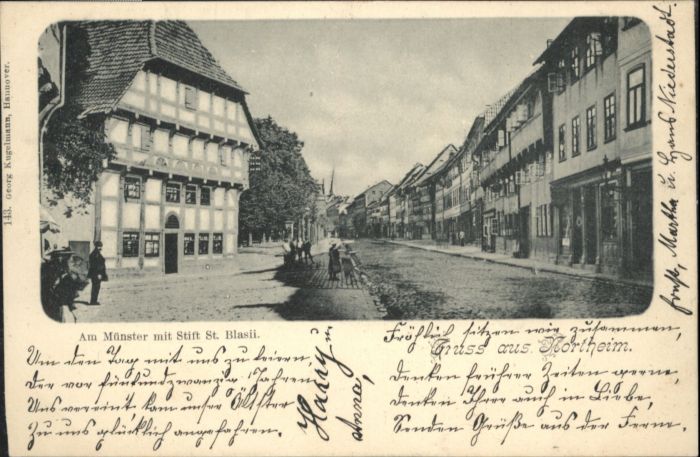 143. Georg Kugelmann, Hannover.
Am Münster mit Stift St. Blasii.
Gruss aus Northeim.
Um den Tag mit uns zu feiern,
Der vor fünfundzwanzig Jahren
Uns vereint kam unser Ältster
Zu uns glücklich angefahren.
Harry u.
Anna,
Fröhlich sitzen wir zusammen,
Denken früherer Zeiten gerne,
Denken Ihrer auch in Liebe,
Senden Grüße aus der Ferne.
Ernst, Martha u. Hans Niederstadt.